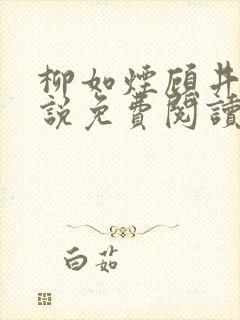 柳如煙顾井
說免費閱讀
白茹